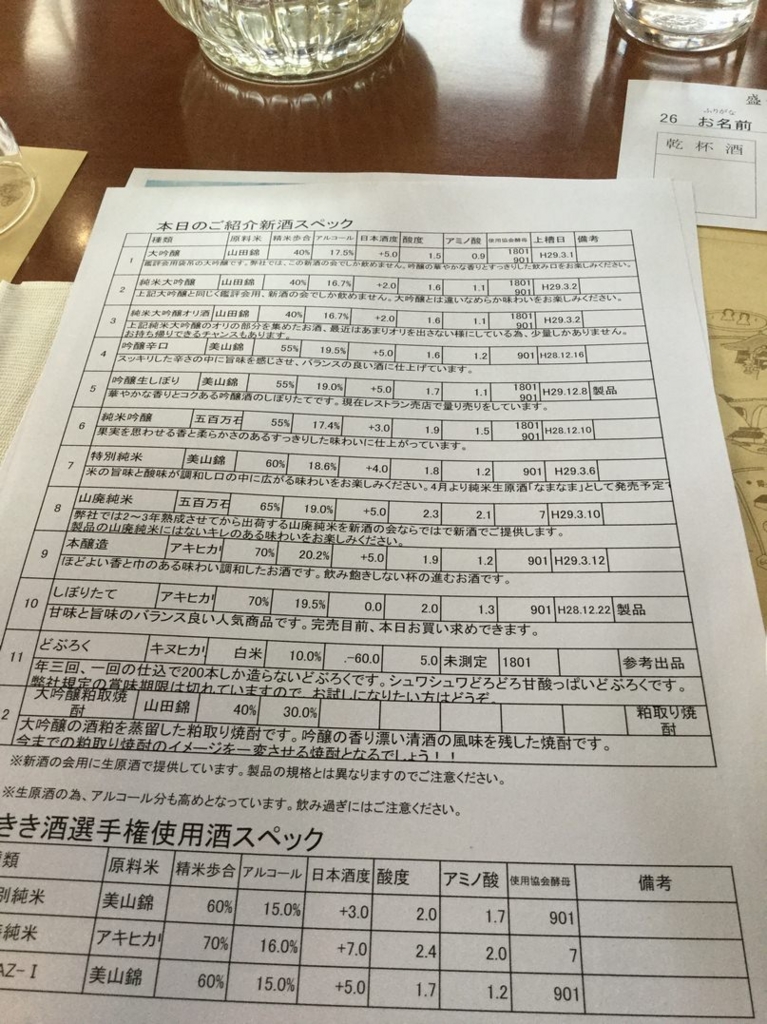 盛
ふりがな
26 お名前
乾杯酒
本日のご紹介新酒スペック
種類 原料米 精米歩合 アルコール 日本酒度 酸度 アミノ酸 使用協会酵母 上槽日 備考
1 大吟醸 山田錦 40% 17.5% +5.0 1.5 0.9 1801 901 H29.3.1
鑑評会用袋吊の大吟醸です。弊社では、この新酒の会でしか飲めません。吟醸の華やかな香りとすっきりした飲み口をお楽しみください。
2 純米大吟醸 山田錦 40% 16.7% +2.0 1.6 1.1 1801 901 H29.3.2
上記大吟醸と同じく鑑評会用、新酒の会でしか飲めません。大吟醸とは違いなめらか味わいをお楽しみください。
3 純米大吟醸オリ酒 山田錦 40% 16.7% +2.0 1.6 1.1 1801 901 H29.3.2
上記純米大吟醸のオリの部分を集めたお酒、最近はあまりオリを出さない様にしている為、少量しかありません。
お持ち帰りできるチャンスもあります。
4 吟醸辛口 美山錦 55% 19.5% +5.0 1.6 1.2 901 H28.12.16
スッキリした辛さの中に旨味を感じさせ、バランスの良い酒に仕上げています。
5 吟醸生しぼり 美山錦 55% 19.0% +5.0 1.7 1.1 1801 901 H29.12.8 製品
華やかな香りとコクある吟醸酒のしぼりたてです。現在レストラン売店で量り売りをしています。
6 純米吟醸 五百万石 55% 17.4% +3.0 1.9 1.5 1801 901 H28.12.10
果実を思わせる香と柔らかさのあるすっきりした味わいに仕上がっています。
7 特別純米 美山錦 60% 18.6% +4.0 1.8 1.2 901 H29.3.6
米の旨味と酸味が調和し口の中に広がる味わいをお楽しみください。4月より純米生原酒「なまなま」として発売予定で
8 山廃純米 五百万石 65% 19.0% +5.0 2.3 2.1 7 H29.3.10
弊社では2～3年熟成させてから出荷する山廃純米を新酒の会ならではで新酒でご提供します。
製品の山廃純米にはないキレのある味わいをお楽しみください。
9 本醸造 アキヒカリ 70% 20.2% +5.0 1.9 1.2 901 H29.3.12
ほどよい香と巾のある味わい調和したお酒です。飲み飽きしない杯の進むお酒です。
10 しぼりたて アキヒカリ 70% 19.5% 0.0 2.0 1.3 901 H28.12.22 製品
甘味と旨味のバランス良い人気商品です。完売目前、本日お買い求めできます。
11 どぶろく キヌヒカリ 白米 10.0% .-60.0 5.0 未測定 1801 参考出品
年三回、一回の仕込で200本しか造らないどぶろくです。シュワシュワどろどろ甘酸っぱいどぶろくです。
弊社規定の賞味期限は切れていますので、お試しになりたい方はどうぞ。
2 大吟醸粕取焼酎 山田錦 40% 30.0% 粕取り焼酎
大吟醸の酒粕を蒸留した粕取り焼酎です。吟醸の香り漂い清酒の風味を残した焼酎です。
今までの粕取り焼酎のイメージを一変させる焼酎となるでしょう！！
※新酒の会用に生原酒で提供しています。製品の規格とは異なりますのでご注意ください。
※生原酒の為、アルコール分も高めとなっています。飲み過ぎにはご注意ください。
きき酒選手権使用酒スペック
類 原料米 精米歩合 アルコール 日本酒度 酸度 アミノ酸 使用協会酵母 備考
別純米 美山錦 60% 15.0% +3.0 2.0 1.7 901
純米 アキヒカリ 70% 16.0% +7.0 2.4 2.0 7
AZ-I 美山錦 60% 15.0% +5.0 1.7 1.2 901